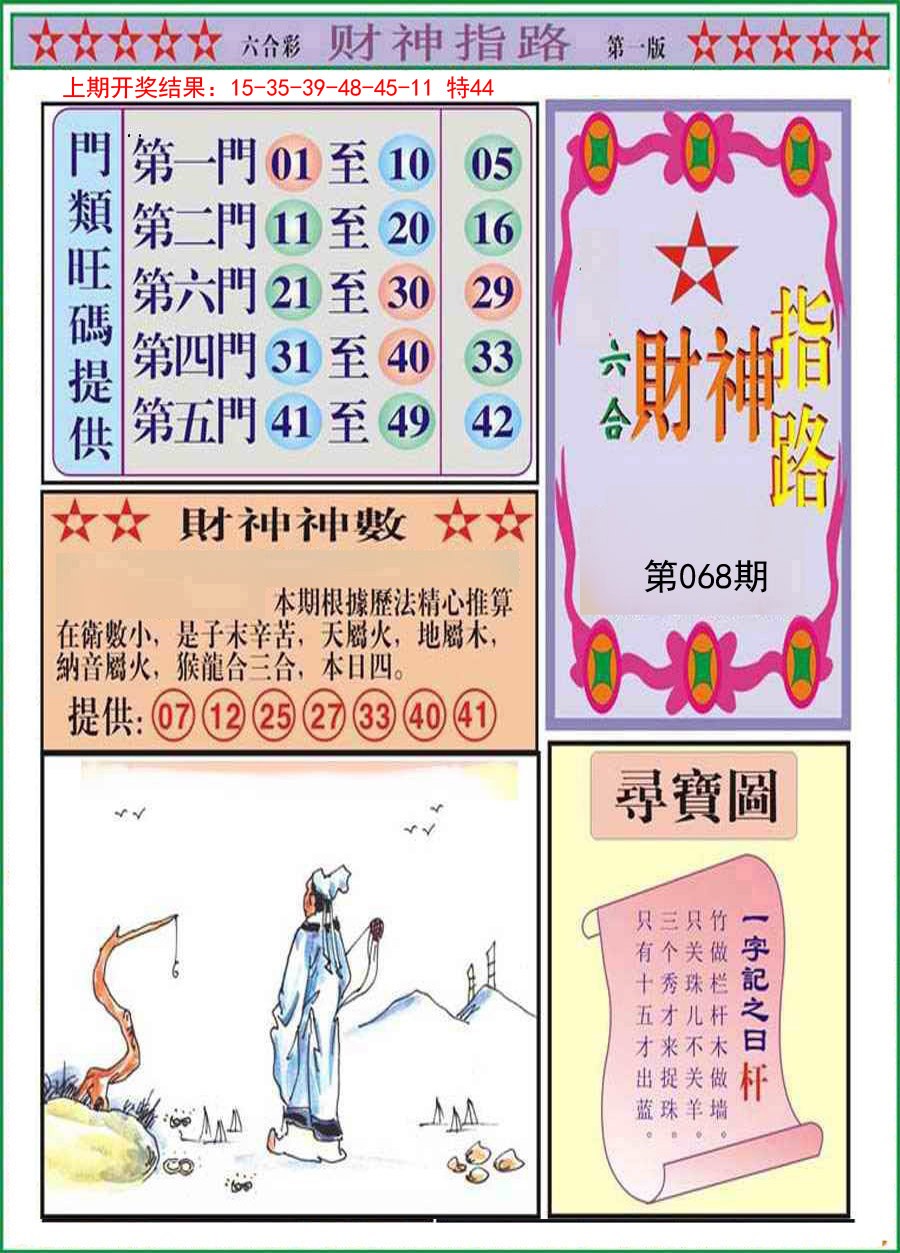 六合彩 财神指路 第一版
上期开奖结果：15-35-39-48-45-11 特44
門類旺碼提供
第一門 01 至 10 05
第二門 11 至 20 16
第六門 21 至 30 29
第四門 31 至 40 33
第五門 41 至 49 42
六合
財神
指路
第068期
財神神數
本期根據歷法精心推算
在衛數小，是子末辛苦，天屬火，地屬木，
納音屬火，猴龍合三合，本日四。
提供: 07 12 25 27 33 40 41
尋寶圖
一字記之曰 杆
竹做栏杆木做墙。
只关珠儿不关羊。
三个秀才来捉珠。
只有十五才出蓝。